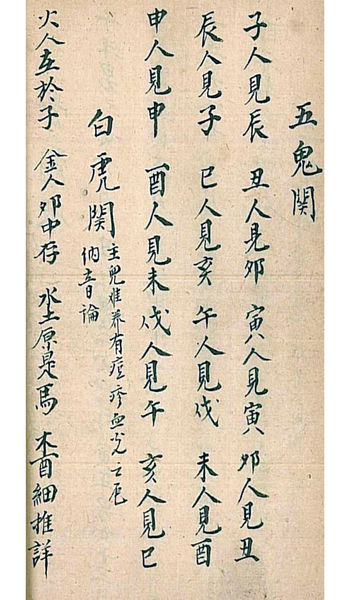 五鬼関
子人見辰 丑人見夘 寅人見寅 夘人見丑
辰人見子 巳人見亥 午人見戌 未人見酉
申人見申 酉人見未 戌人見午 亥人見巳
白虎関 主児难养有痘疹血光之厄
納音論
火人在於子 金人夘中存 水土原是馬 木酉細推詳